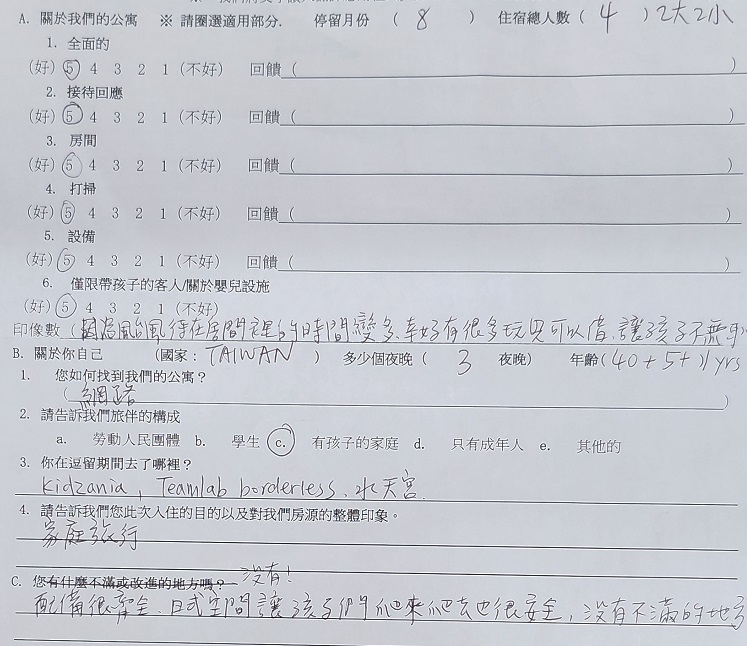 A. 關於我們的公寓 ※ 請圈選適用部分. 停留月份 ( 8 ) 住宿總人數 ( 4 ) 2大2小
1. 全面的
(好) 5 4 3 2 1 (不好) 回饋 ( )
2. 接待回應
(好) 5 4 3 2 1 (不好) 回饋 ( )
3. 房間
(好) 5 4 3 2 1 (不好) 回饋 ( )
4. 打掃
(好) 5 4 3 2 1 (不好) 回饋 ( )
5. 設備
(好) 5 4 3 2 1 (不好) 回饋 ( )
6. 僅限帶孩子的客人/關於嬰兒設施
(好) 5 4 3 2 1 (不好)
印像數 (因為颱風待在房間裡的時間變多,幸好有很多玩具可以借,讓孩子不無聊
B. 關於你自己 (國家: TAIWAN ) 多少個夜晚 ( 3 夜晚) 年齡(40+5+1)yrs
1. 您如何找到我們的公寓?
( 網路 )
2. 請告訴我們旅伴的構成
a. 勞動人民團體 b. 學生 c. 有孩子的家庭 d. 只有成年人 e. 其他的
3. 你在逗留期間去了哪裡?
Kidzania, Teamlab borderless、水天宮.
4. 請告訴我們您此次入住的目的以及對我們房源的整體印象。
家庭旅行
C. 您有什麼不滿或改進的地方嗎? 沒有!
配備很齊全、日式空間讓孩子們爬來爬去也很安全,沒有不滿的地方